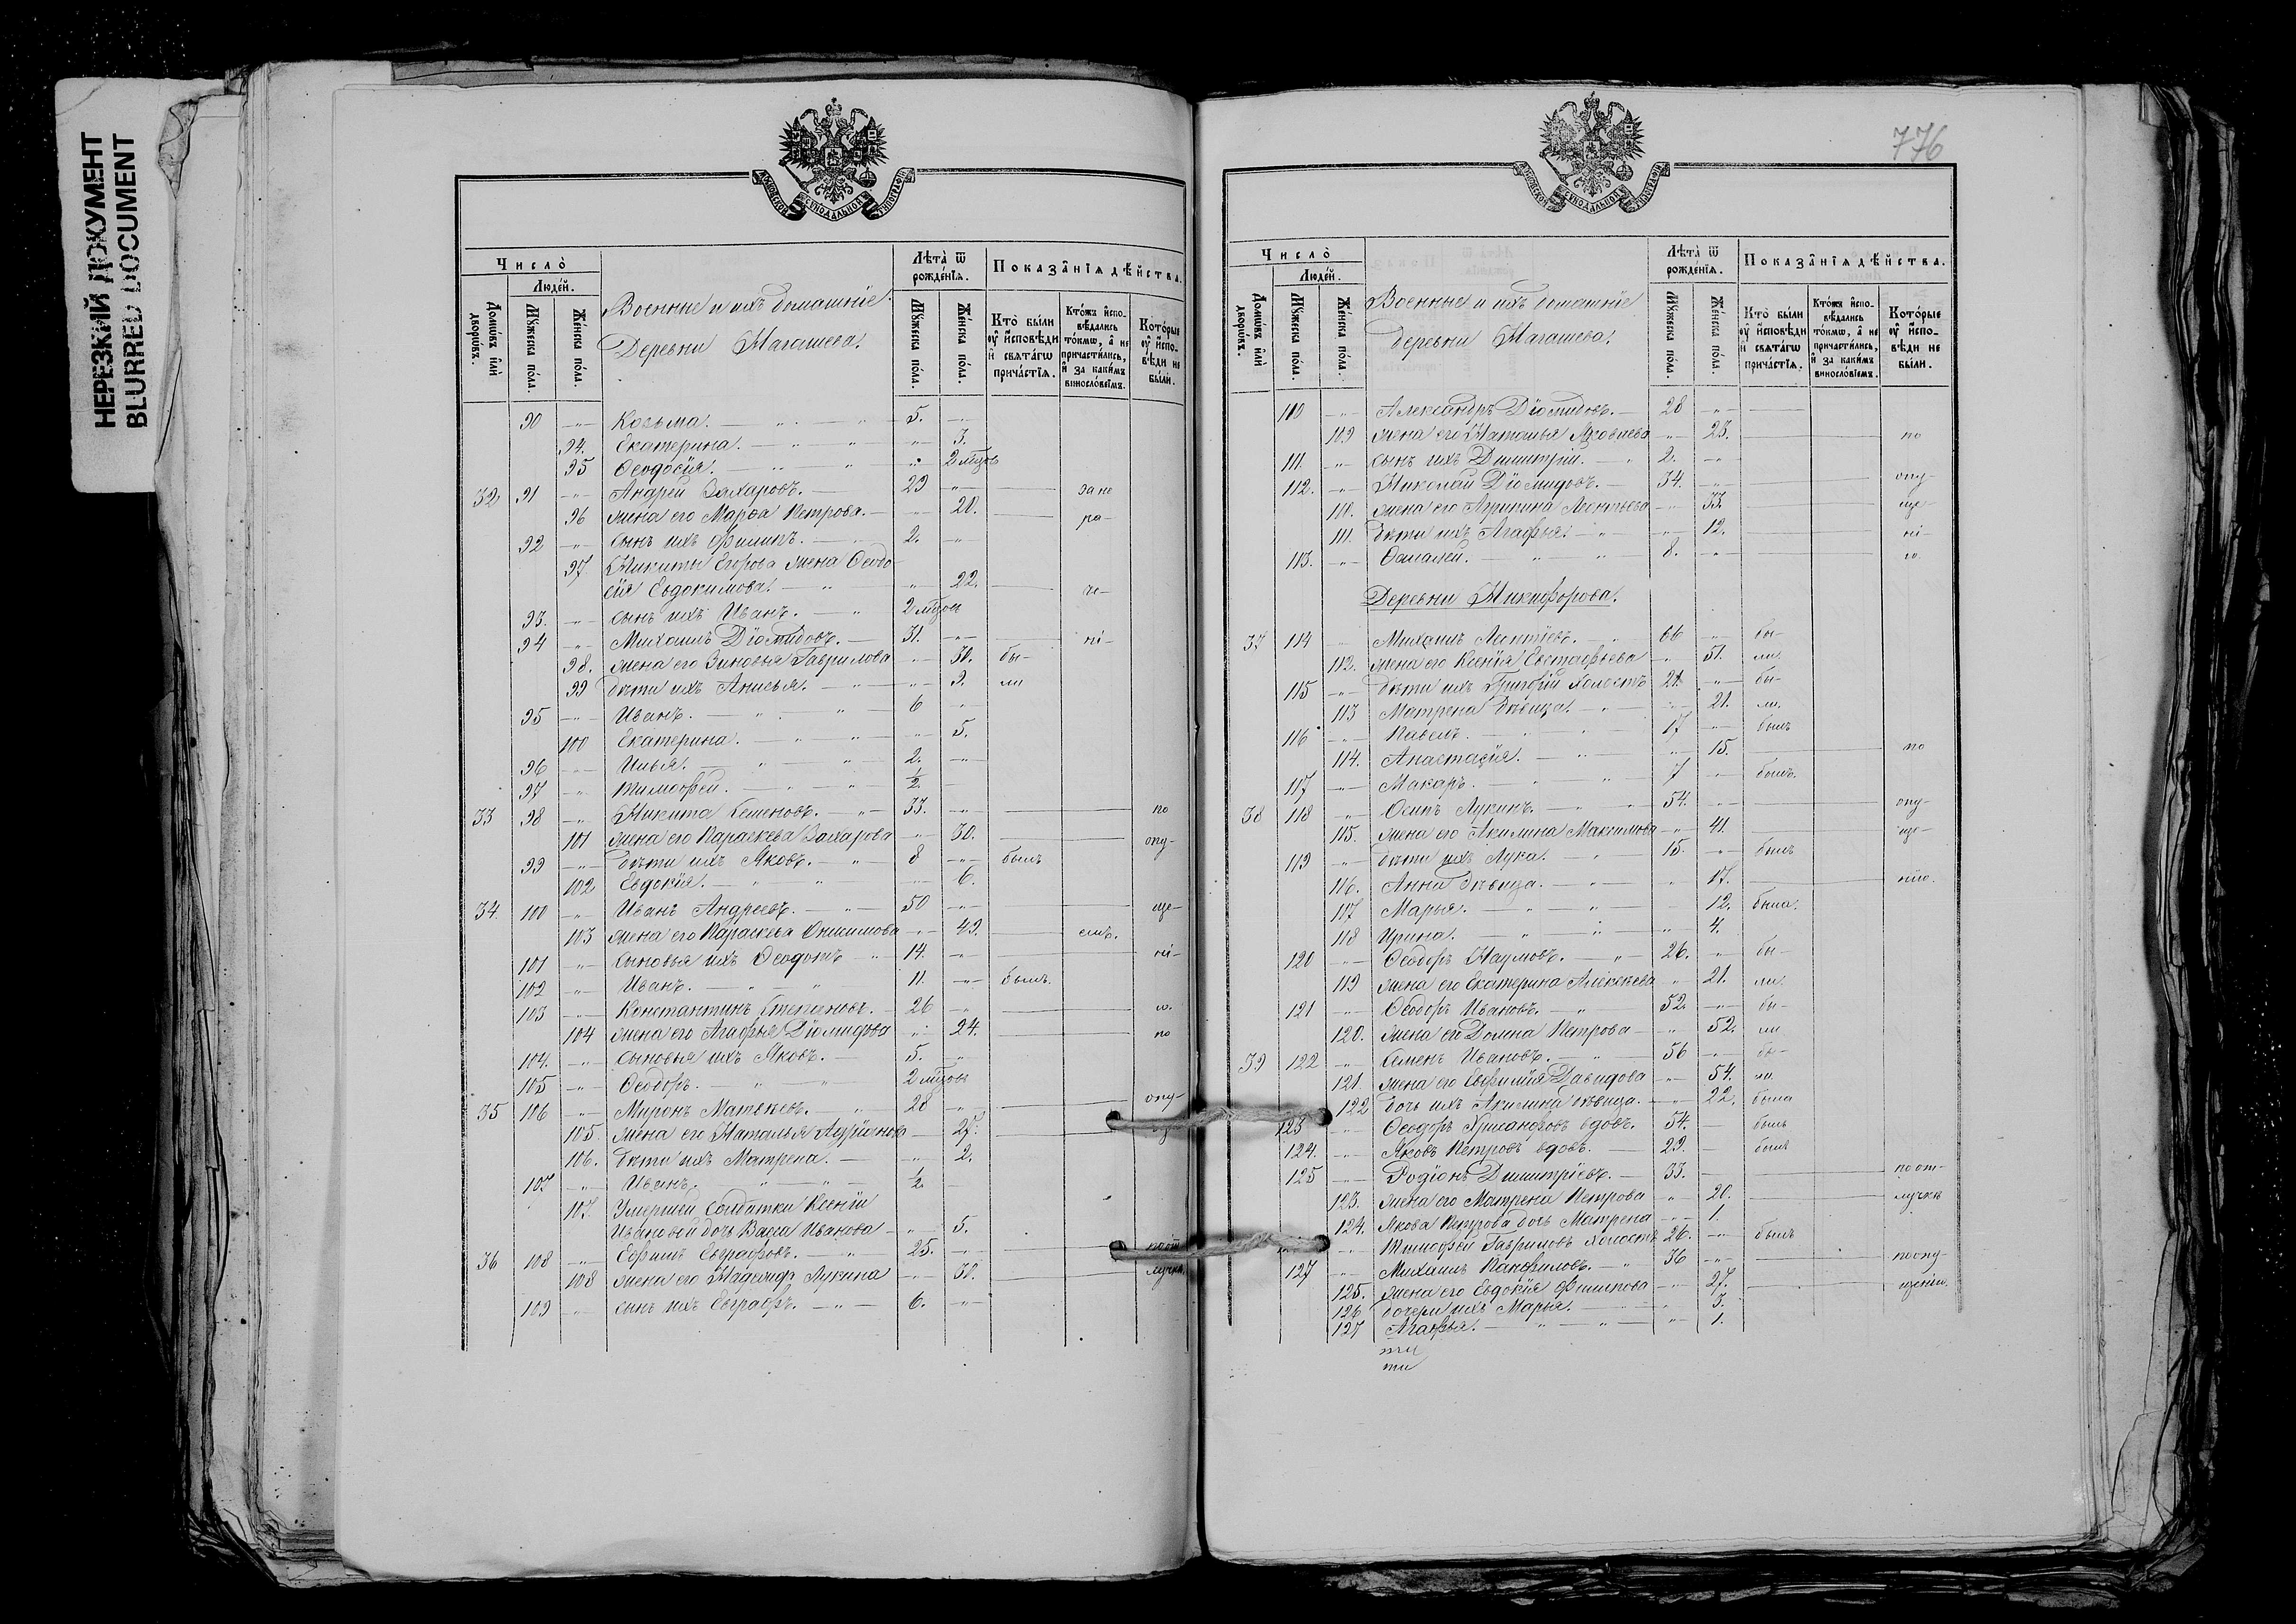 НЕРЕЗКИЙ ДОКУМЕНТ
BLURRED DOCUMENT
МОСКОВСКОЙ СУНОДАЛЬНОЙ ТИПОГРАФІИ
Число̀
Людѐй.
Домѡ́въ и҆лѝ дворѡ́въ.
Мꙋ́жеска по́ла.
Же́нска по́ла.
Военные и ихъ домашніе
Деревни Магашева.
Лѣта̀ ѿ рожде́нїѧ.
Мꙋ́жеска по́ла.
Же́нска по́ла.
Показа̑нїѧ дѣ́йства.
Кто̀ бы́ли ᲂу҆ и҆сповѣ́ди и҆ свѧта́гѡ прича́стїѧ.
Кто́жъ и҆спо-вѣ́дались то́кмѡ, а҆ не причасти́лись, и҆ за каки́мъ виносло́вїемъ.
Кото́рые ᲂу҆ и҆спо-вѣ́ди не бы́ли.
90 Козьма. 5.
94. Екатерина. 3.
95 Ѳеодосія. 2 мѣсѧц
32 91 Андрей Захаровъ. 29 за но
96 жена его Марѳа Петрова. 28. ра-
92 сынъ ихъ Филипъ. 2.
97 Никиты Егорова жена Ѳеодо
сія Евдокимова. 22. че-
93. сынъ ихъ Иванъ. 2 мѣсѧц
94 Михаилъ Діомидовъ. 31. ні-
98. жена его Зиновья Гаврилова 30. бы-
99 дѣти ихъ Анисья. 9. ли
95 Иванъ. 6
100 Екатерина. 5.
96 Илья. 2.
97 Тимоѳей. ½
33 98 Никита Семеновъ. 33. по
101 жена его Параскева Захарова 30. опу-
99 дѣти ихъ Яковъ. 8 былъ
102 Евдокія. 6.
34. 100 Иванъ Андреевъ. 50 ще-
103 жена его Параскева Онисимова 49. емъ.
101 сыновья ихъ Ѳеодотъ 14. ні-
102 Иванъ. 11. былъ.
103 Константинъ Степановъ. 26 ю.
104 жена его Агафья Діомидова 24. по
104. сыновья ихъ Яковъ. 5.
105 Ѳеодоръ. 2 мѣсѧц
35 106 Миронъ Матвѣевъ. 28 опу-
105. жена его Наталья Андріянова 27.
106. дѣти ихъ Матрена. 2.
107 Иванъ. ½
107. Умершей солдатки Ксеніи
Ивановой дочь Васса Иванова 5.
36 108 Ефимъ Евграфовъ. 25. по от
108 жена его Надежда Лукина 30. лучкѣ
109 сынъ ихъ Евграфъ. 6.
776
МОСКОВСКОЙ СУНОДАЛЬНОЙ ТИПОГРАФІИ
Число̀
Людѐй.
Домѡ́въ и҆лѝ дворѡ́въ.
Мꙋ́жеска по́ла.
Же́нска по́ла.
Военные и ихъ домашніе
деревни Магашева.
Лѣта̀ ѿ рожде́нїѧ.
Мꙋ́жеска по́ла.
Же́нска по́ла.
Показа̑нїѧ дѣ́йства.
Кто̀ бы́ли ᲂу҆ и҆сповѣ́ди и҆ свѧта́гѡ прича́стїѧ.
Кто́жъ и҆спо-вѣ́дались то́кмѡ, а҆ не причасти́лись, и҆ за каки́мъ виносло́вїемъ.
Кото́рые ᲂу҆ и҆спо-вѣ́ди не бы́ли.
110 Александръ Діомидовъ. 28
109 жена его Наталья Яковлева 23. по
111. сынъ ихъ Димитрій. 2.
112. Николай Діомидовъ. 34. опу-
110. жена его Агрипина Леонтьева 33. ще-
111. дѣти ихъ Агафья. 12. ні-
113. Ѳаллалей. 8. ю.
Деревни Никифорова.
37 114 Михаилъ Леонтіевъ. 66 бы-
112. жена его Ксенія Евстафьева 51. ли.
115 дѣти ихъ Григорій холостъ 24. бы-
113 Матрена дѣвица. 21. ли.
116 Павелъ. 17 былъ
114. Анастасія. 15. по
117 Макаръ. 7 былъ.
38 118 Осипъ Лукинъ. 54. опу-
115. жена его Акилина Максимова 41. ще-
119 дѣти ихъ Лука. 15. былъ
116. Анна дѣвица. 17. нію.
117 Марья. 12. была.
118 Ирина. 4.
120 Ѳеодоръ Наумовъ. 26. бы-
119 жена его Екатерина Алексѣева 21. ли.
121 Ѳеодоръ Ивановъ. 52. бы-
120. жена его Домна Петрова 52. ли
39 122 Семенъ Ивановъ. 56 бы-
121. жена его Евфимія Давидова 54. ли.
122 дочь ихъ Акилина дѣвица. 22. была
123 Ѳеодоръ Хрисанфовъ вдовъ. 54. былъ
124. Яковъ Петровъ вдовъ. 29. былъ
125 Родіонъ Димитріевъ. 33. по от-
123. жена его Матрена Петрова 28. лучкѣ
124. Якова Петрова дочь Матрена 1.
Тимофей Гавриловъ холостъ 26. былъ
127 Михаилъ Панфиловъ. 36 по опу-
125. жена его Евдокія Филипова 27. щенію.
126 дочери ихъ Марья. 3.
127 Агафья. 1.
ти
ти